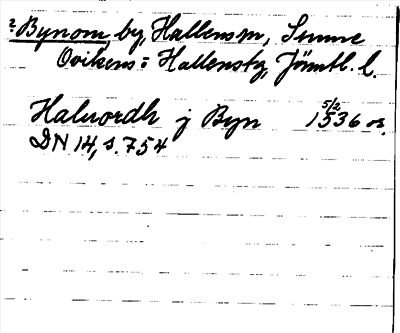 ? Bynom, by, Hallens sn, Sunne
Ovikens = Hallens tg, Jämtl. l.
Halvordh j Byn 5/2 1536 or.
DN 14, s. 754